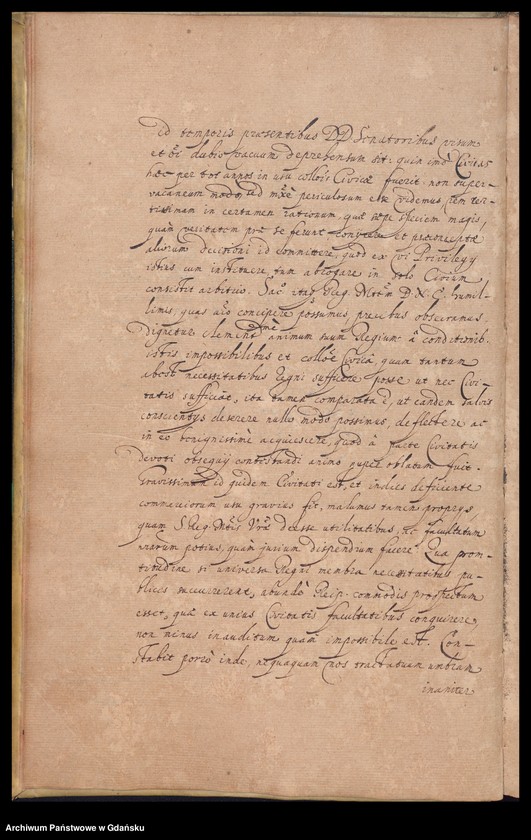 id temporis præsentibus DD Senatoribus visum
et oī dubio vacuum deprehensum sit: quin imo Civitas
hæc per tot annos in usu collōis Civicæ fuerit, non super-
vacaneum modo, sed mx̄e periculosum esse videmus, rem cer-
tissimam in certamen rationum, quæ sæpe speciem magis,
quam veritatem præ se ferunt, et præconcepta
aliorum decisioni id committere, quod ex vi Privilegÿ
istius cum instituere, tum abrogare in solo Civium
consistit arbitrio. Sac. itaq Reg. Mttem D. N. C. humil-
limis, quas aīo concipere possumus, precibus obsecramus,
dignetur clementissime animum suum Regium à conditionib.
istis impossibilibus et collōe Civica, quam tantum
abest necessitatibus Regni sufficere posse, ut nec Civi-
tatis sufficiat, ita tamen comparata ē, ut eandem salvis
conscientÿs deserere nullo modo possimus, deflectere ac
in eo benignissime acquiescere, quod à parte Civitatis
devoti obsequÿ contestandi animo nuper oblatum fuit.
Gravissimum id quidem Civitati est, et indies deficiente
commerciorum usu gravius fit, malumus tamen proprÿs,
quam S. Reg. Mttis Vræ deesse utilitatibus, ac facultatum
nrarum potius, quàm jurium dispendium facere. Qua prom-
titudine si universa Regni membra necessitatibus pu-
blicis succurrerent, abundè Reip. commodis prospectum
esset, quæ ex unius Civitatis facultatibus conquirere,
non minus inauditum quam impossibile est. Con-
stabit porro inde, nequaquam nos tractatuum umbram
inaniter